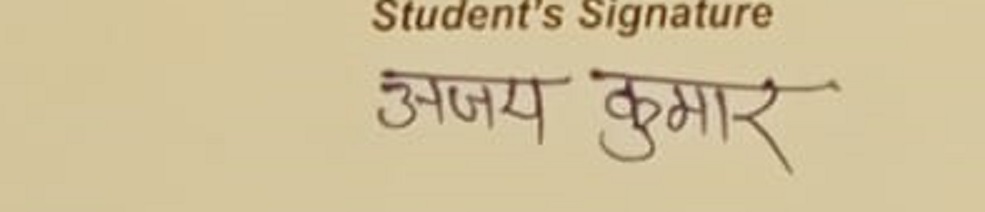 Student's Signature
अजय कुमार